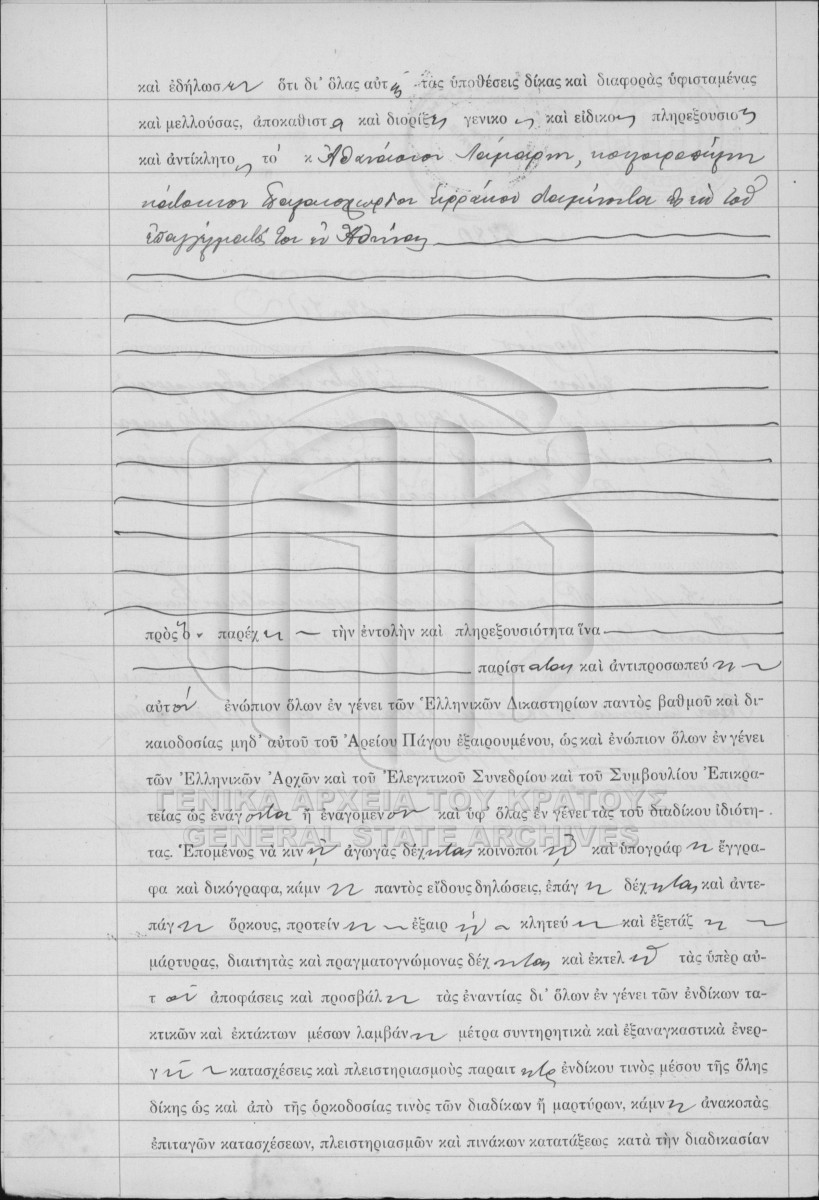 καὶ ἐδήλωσεν ὅτι δι' ὅλας αὐτῆς τὰς ὑποθέσεις δίκας καὶ διαφορὰς ὑφισταμένας
καὶ μελλούσας, ἀποκαθιστᾷ καὶ διορίζει γενικον καὶ εἰδικον πληρεξουσιον
καὶ ἀντίκλητον τὸν κ. Ἀθανάσιον
κάτοικον διαμένοντα
ἐπαγγέλματός του ἐν Ἀθήναις
πρὸς ὃν παρέχει τὴν ἐντολὴν καὶ πληρεξουσιότητα ἵνα
παρίσταται καὶ ἀντιπροσωπεύῃ
αὐτὸν ἐνώπιον ὅλων ἐν γένει τῶν Ἑλληνικῶν Δικαστηρίων παντὸς βαθμοῦ καὶ δι-
καιοδοσίας μηδ' αὐτοῦ τοῦ Ἀρείου Πάγου ἐξαιρουμένου, ὡς καὶ ἐνώπιον ὅλων ἐν γένει
τῶν Ἑλληνικῶν Ἀρχῶν καὶ τοῦ Ἐλεγκτικοῦ Συνεδρίου καὶ τοῦ Συμβουλίου Ἐπικρα-
ΓΕΝΙΚΑ ΑΡΧΕΙΑ ΤΟΥ ΚΡΑΤΟΥΣ
τείας ὡς ἐνάγοντα ἢ ἐναγόμενον καὶ ὑφ' ὅλας ἐν γένει τὰς τοῦ διαδίκου ἰδιότη-
GENERAL STATE ARCHIVES
τας. Ἑπομένως νὰ κινῇ ἀγωγὰς δέχηται κοινοποιῇ καὶ ὑπογράφῃ ἔγγρα-
φα καὶ δικόγραφα, κάμνῃ παντὸς εἴδους δηλώσεις, ἐπάγῃ δέχηται καὶ ἀντε-
πάγῃ ὅρκους, προτείνῃ ἐξαιρῇ κλητεύῃ καὶ ἐξετάζῃ
μάρτυρας, διαιτητὰς καὶ πραγματογνώμονας δέχηται καὶ ἐκτελῇ τὰς ὑπὲρ αὐ-
τοῦ ἀποφάσεις καὶ προσβάλῃ τὰς ἐναντίας δι' ὅλων ἐν γένει τῶν ἐνδίκων τα-
κτικῶν καὶ ἐκτάκτων μέσων λαμβάνῃ μέτρα συντηρητικὰ καὶ ἐξαναγκαστικὰ ἐνερ-
γῇ κατασχέσεις καὶ πλειστηριασμοὺς παραιτῆται ἐνδίκου τινὸς μέσου τῆς ὅλης
δίκης ὡς καὶ ἀπὸ τῆς ὁρκοδοσίας τινὸς τῶν διαδίκων ἢ μαρτύρων, κάμνῃ ἀνακοπὰς
ἐπιταγῶν κατασχέσεων, πλειστηριασμῶν καὶ πινάκων κατατάξεως κατὰ τὴν διαδικασίαν